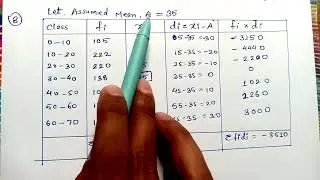 8 Let Assumed Mean, A = 35
Class fi di = xi - A fi × di
0-10 105 05-35=-30 -3150
10-20 222 15-35=-20 -4440
20-30 220 25-35=-10 -2200
30-40 138 35-35=0 0
40-50 45-35=10 1020
50-60 55-35=20
60-70 -35=30 3000
Σfidi = -3510